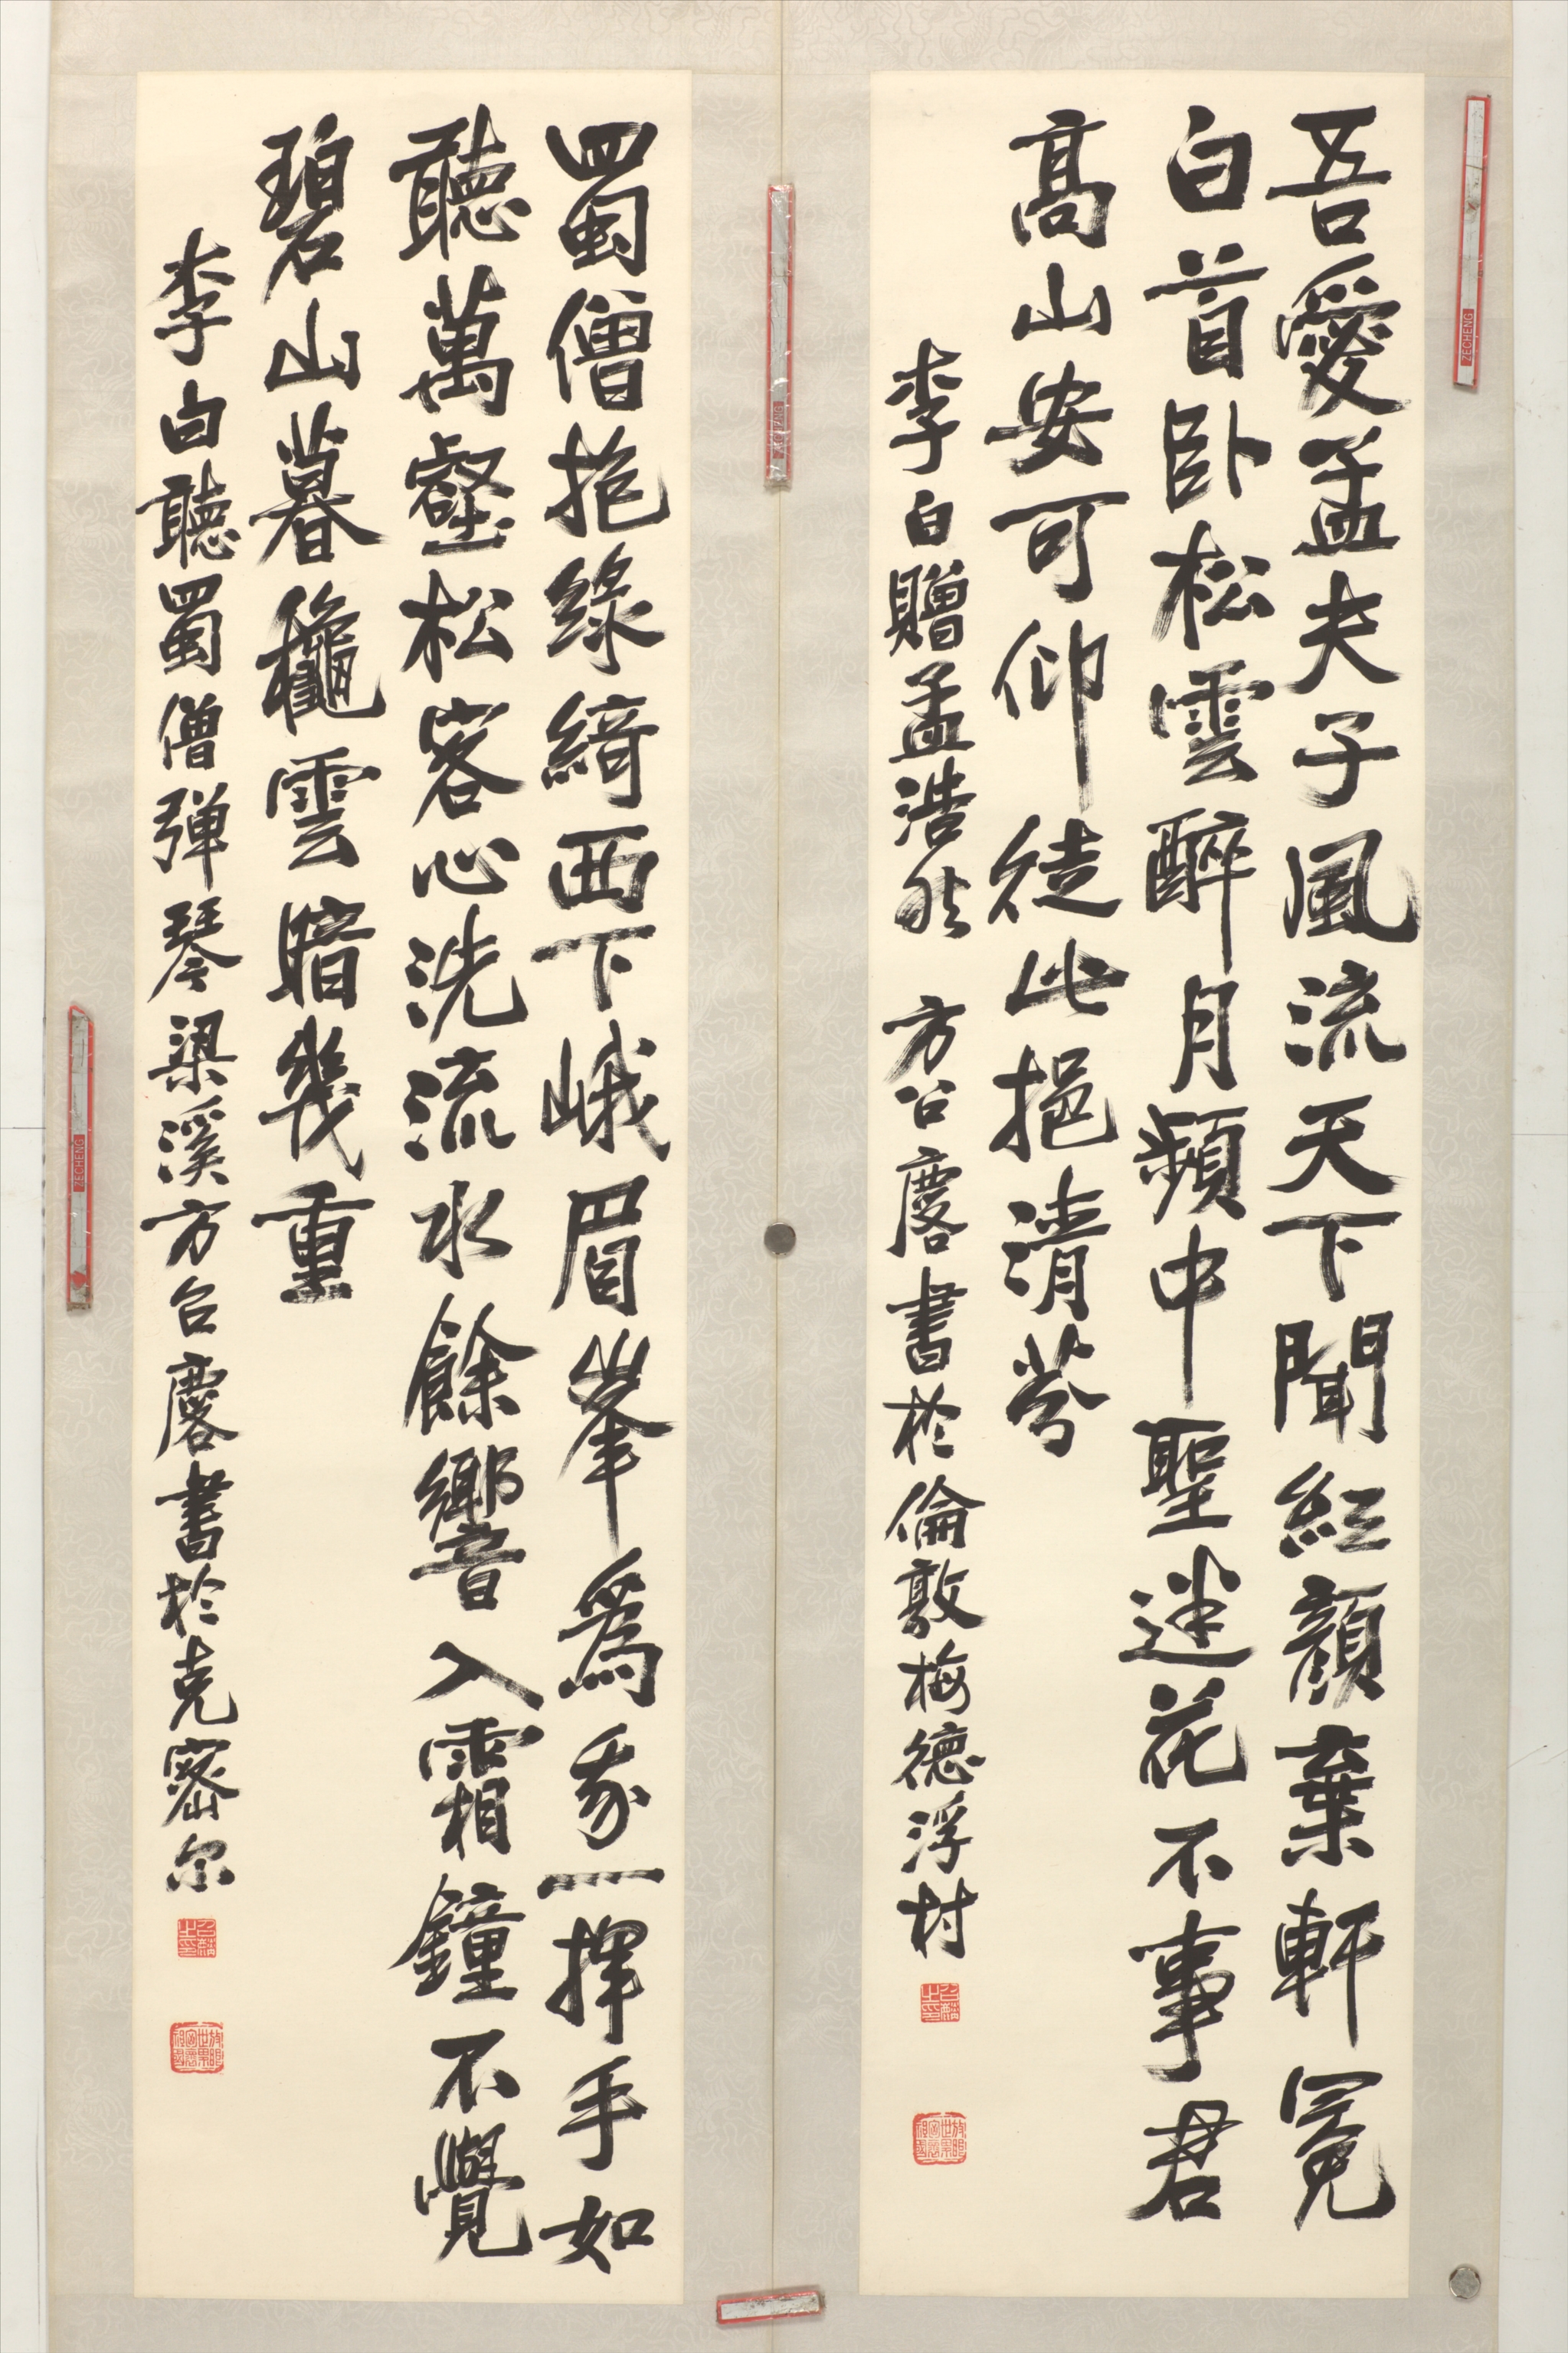 吾愛孟夫子風流天下聞紅顏棄軒冕
白首臥松雲醉月頻中聖迷花不事君
高山安可仰徒此挹清芬
李白贈孟浩然 方召麐書於倫敦梅德浮村
蜀僧抱綠綺西下峨眉峯為我一揮手如
聽萬壑松客心洗流水餘響入霜鐘不覺
碧山暮龝雲暗幾重
李白聽蜀僧弹琴梁溪方召麐書於克密尔
召麐之印
召麐之印
ZECHENG
ZECHENG